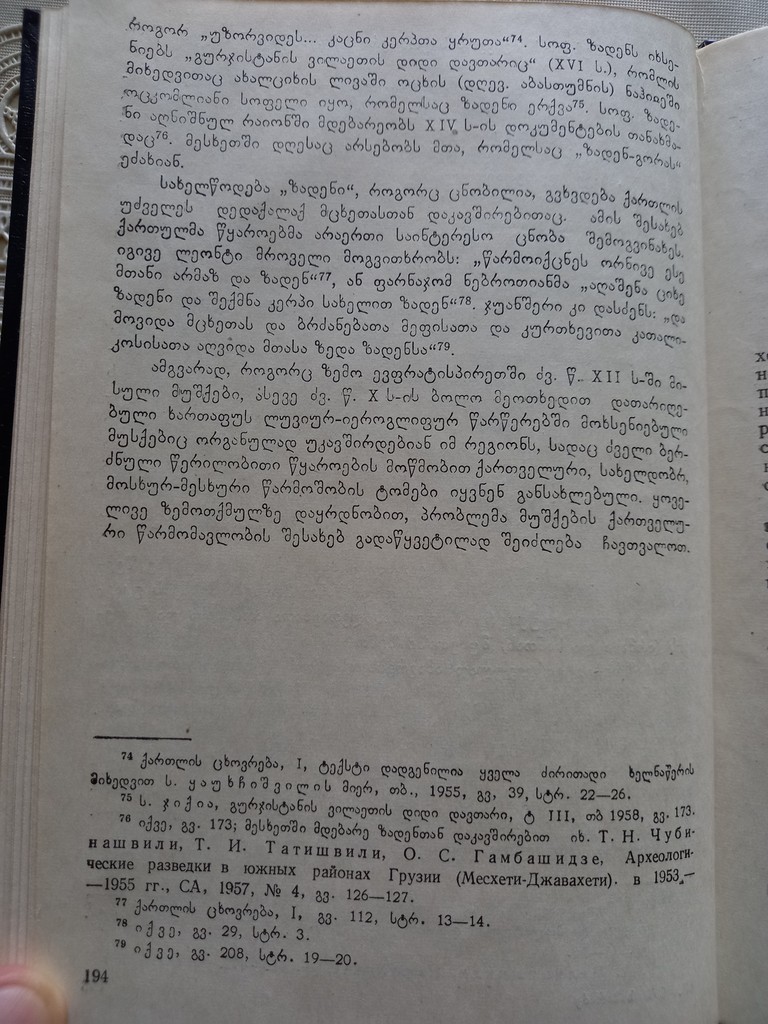 როგორ „უზორვიდეს... კაცნი კერპთა ყრუთა“74. სოფ. ზადენს იხსე-
ნიებს „გურჯისტანის ვილაეთის დიდი დავთარიც“ (XVI ს.), რომლის
მიხედვითაც ახალციხის ლივაში ოცხის (დღევ. აბასთუმნის) ნაჰიეში
ოცკომლიანი სოფელი იყო, რომელსაც ზადენი ერქვა75. სოფ. ზადე-
ნი აღნიშნულ რაიონში მდებარეობს XIV ს-ის დოკუმენტების თანახმა-
დაც76. მესხეთში დღესაც არსებობს მთა, რომელსაც „ზადენ-გორას“
ეძახიან.
სახელწოდება „ზადენი“, როგორც ცნობილია, გვხვდება ქართლის
უძველეს დედაქალაქ მცხეთასთან დაკავშირებითაც. ამის შესახებ
ქართულმა წყაროებმა არაერთი საინტერესო ცნობა შემოგვინახეს.
იგივე ლეონტი მროველი მოგვითხრობს: „წარმოიქცნეს ორნივე ესე
მთანი არმაზ და ზადენ“77, ან ფარნაჯომ ნებროთიანმა „აღაშენა ციხე
ზადენი და შექმნა კერპი სახელით ზადენ“78. ჯუანშერი კი დასძენს: „და
მოვიდა მცხეთას და ბრძანებათა მეფისათა და კურთხევითა კათალი-
კოსისათა აღვიდა მთასა ზედა ზადენსა“79.
ამგვარად, როგორც ზემო ევფრატისპირეთში ძვ. წ. XII ს-ში მი-
სული მუშქები, ასევე ძვ. წ. X ს-ის ბოლო მეოთხედით დათარიღე-
ბული ხართაფუს ლუვიურ-იეროგლიფურ წარწერებში მოხსენიებული
მუსქებიც ორგანულად უკავშირდებიან იმ რეგიონს, სადაც ძველი ბერ-
ძნული წერილობითი წყაროების მოწმობით ქართველური, სახელდობრ,
მოსხურ-მესხური წარმოშობის ტომები იყვნენ განსახლებული. ყოვე-
ლივე ზემოთქმულზე დაყრდნობით, პრობლემა მუშქების ქართველუ-
რი წარმომავლობის შესახებ გადაწყვეტილად შეიძლება ჩავთვალოთ.
74 ქართლის ცხოვრება, I, ტექსტი დადგენილია ყველა ძირითადი ხელნაწერის
მიხედვით ს. ყაუხჩიშვილის მიერ, თბ., 1955, გვ, 39, სტრ. 22—26.
75 ს. ჯიქია, გურჯისტანის ვილაეთის დიდი დავთარი, ტ III, თბ 1958, გვ. 173.
76 იქვე, გვ. 173; მესხეთში მდებარე ზადენთან დაკავშირებით იხ. Т. Н. Чуби-
нашвили, Т. И. Татишвили, О. С. Гамбашидзе, Археологи-
ческие разведки в южных районах Грузии (Месхети-Джавахети). в 1953—
—1955 гг., СА, 1957, № 4, გვ. 126—127.
77 ქართლის ცხოვრება, I, გვ. 112, სტრ. 13—14.
78 იქვე, გვ. 29, სტრ. 3.
79 იქვე, გვ. 208, სტრ. 19—20.
194